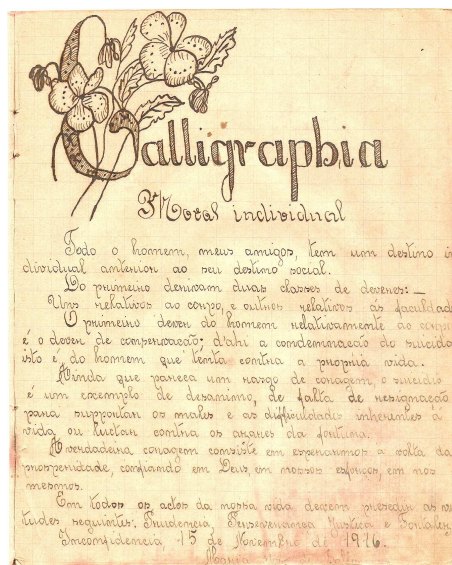 Calligraphia
Moral individual
Todo o homem, meus amigos, tem um destino in
dividual anterior ao seu destino social.
Do primeiro derivam duas classes de deveres: —
Uns relativos ao corpo, e outros relativos ás faculdad
O primeiro dever do homem relativamente ao corpo
é o dever de conservação; d'ahi a condemnação do suicida
isto é, do homem que tenta contra a propria vida.
Ainda que pareça um rasgo de coragem, o suicidio
é um exemplo de desanimo, de falta de resignação
para supportar os males e as difficuldades inherentes á
vida ou luctar contra os azares da fortuna.
A verdadeira coragem consiste em esperarmos a volta da
prosperidade, confiando em Deus, em nossos esforços, em nós
mesmos.
Em todos os actos da nossa vida devem presedir as vir
tudes seguintes: Prudencia, Perseverança Justiça e Fortalez
Inconfidencia, 15 de Novembro de 1916.
Maria